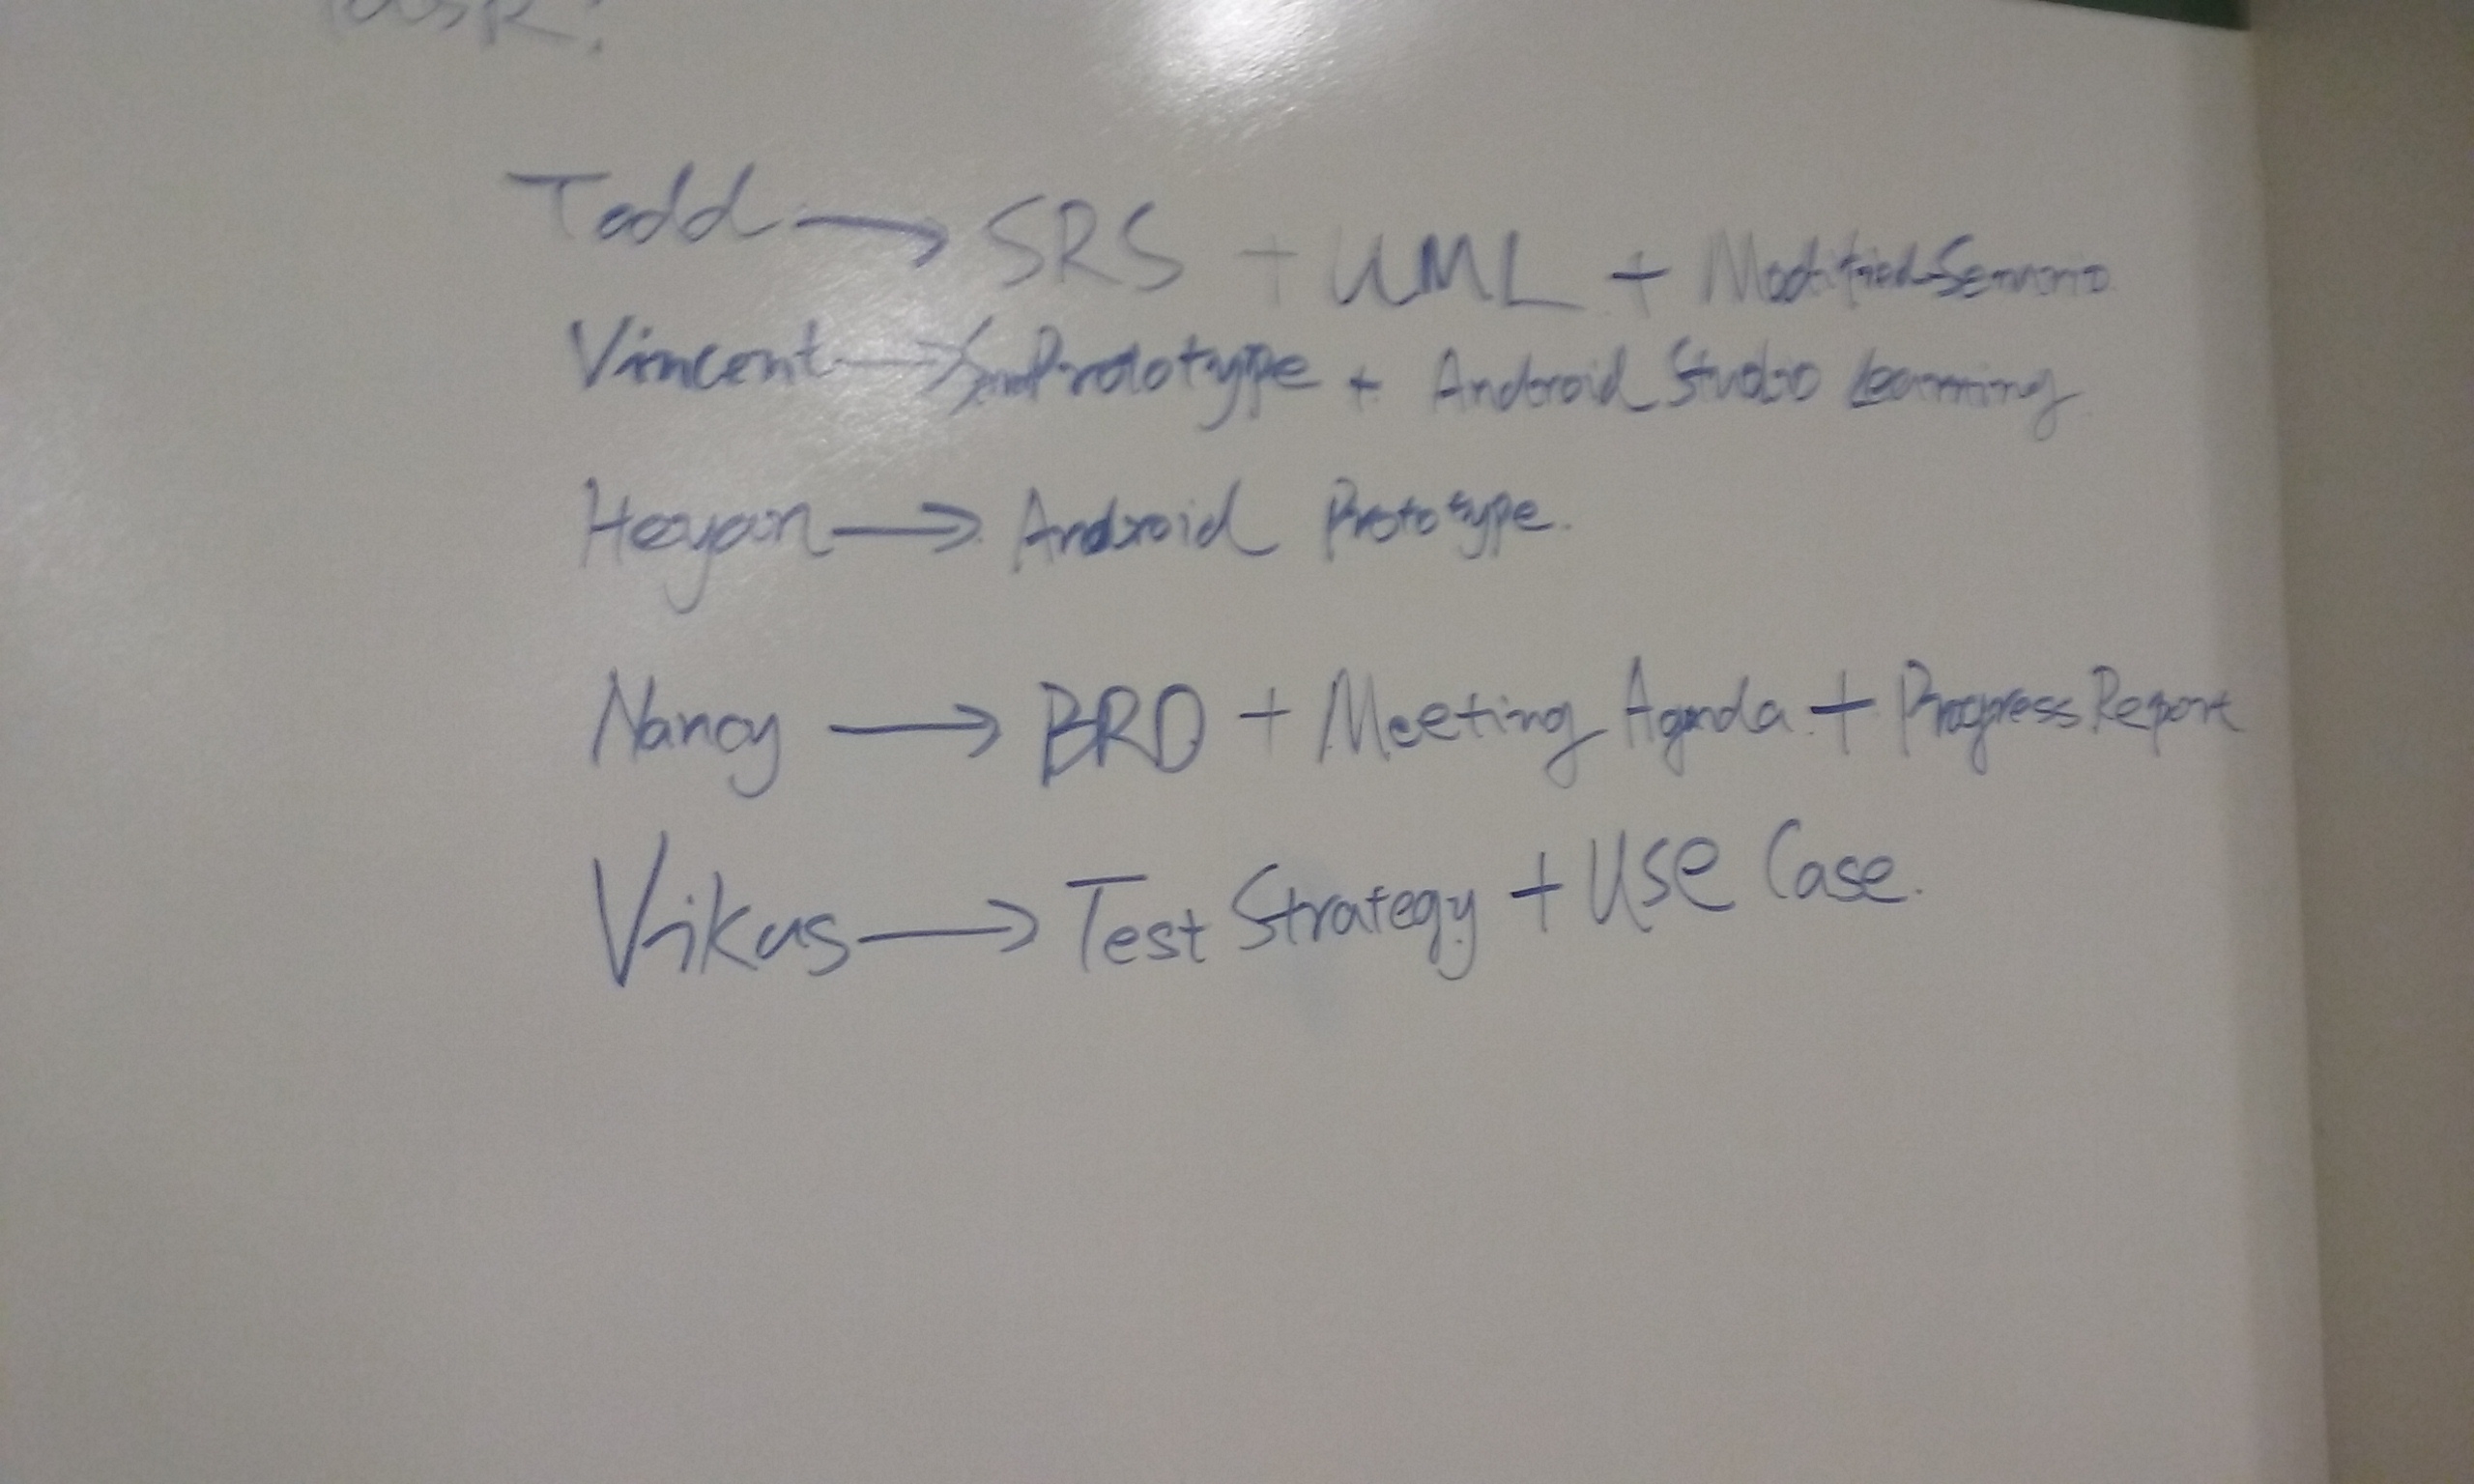 Task:
Todd → SRS + UML + Modified Scenario
Vincent → Prototype + Android Studio Learning
Heyan → Android Prototype.
Nancy → BRD + Meeting Agenda + Progress Report
Vikas → Test Strategy + Use Case.